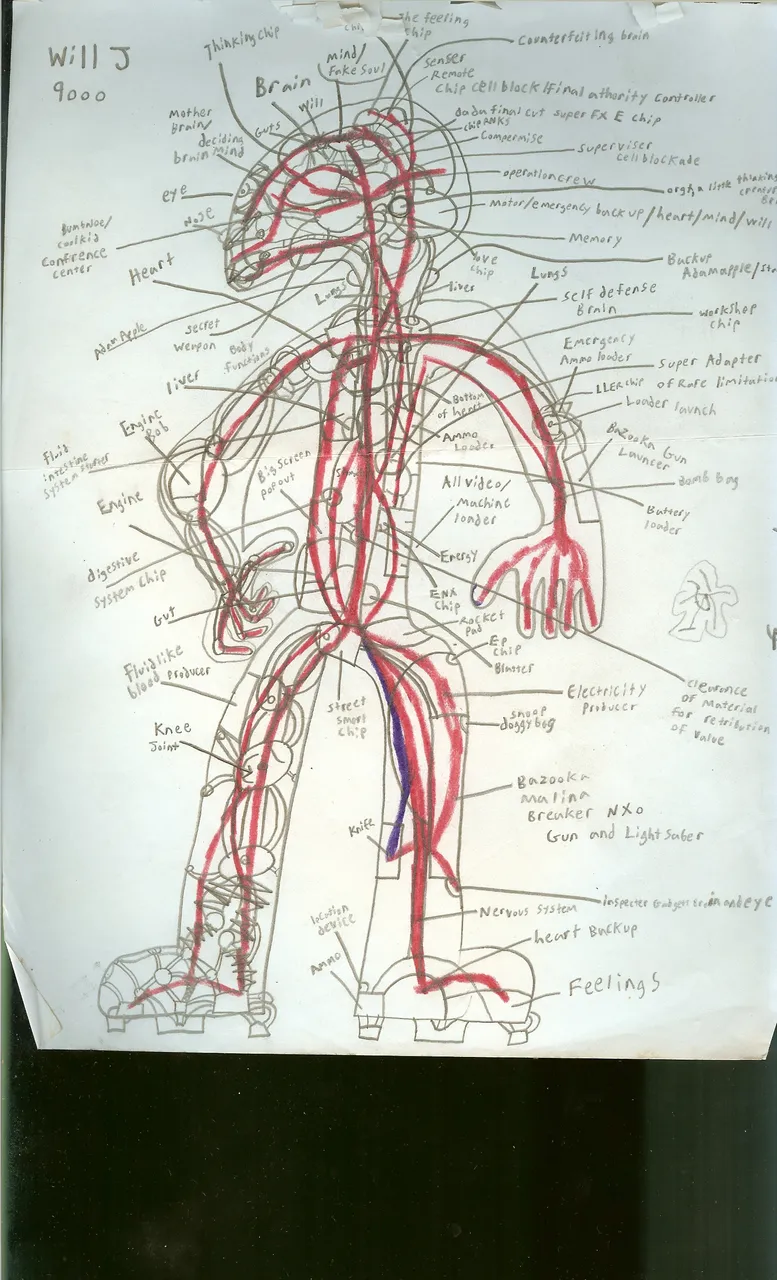 Will J
9000
Thinking chip
The feeling
chip
Counterfeiting brain
mind/
Fake Soul
senser
Remote
Chip cell block/final athority controller
Brain
Will
Guts
Mother
Brain/
deciding
brain mind
dadu final cut super FX E chip
Compermise
superviser
cell blockade
operation crew
eye
Nose
Motor/emergency back up/heart/mind/will
Memory
coolkid
Confrence
center
Backup
Adam apple/
Heart
Love
chip
liver
Lungs
Lungs
Self defense
Brain
workshop
chip
Aden Apple
Secret
Weapon
Body
Functions
Emergency
Ammo loader
Super Adapter
of Rare limitation
LLER chip
Loader launch
liver
Bottom
of heart
Engine
Bob
Ammo
Loader
Bazooka Gun
Launcer
Bomb Bag
Fluid
intestine
Big Screen
pop out
All video/
Machine
loader
Battery
loader
Engine
digestive
System Chip
Energy
ENX
Chip
Gut
Rocket
Pad
EP
chip
Blatter
Fluidlike
blood producer
clearance
of Material
for retribution
of Value
Electricity
Producer
Street
Smart
Chip
snoop
doggy bag
Knee
Joint
Bazooka
Malina
Breaker NXO
Gun and Light Saber
Knife
Nervous System
location
device
heart Backup
Ammo
Feelings